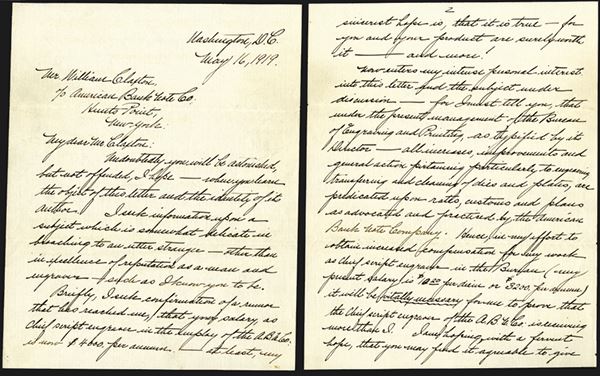 Washington, D.C.
May 16, 1919.
Mr William Claxton,
c/o American Bank Note Co.
Hunts Point,
New-York.
My dear Mr Claxton:
Undoubtedly you will be astonished,
but not offended, I hope — when you learn
the object of this letter and the identity of its
author. I seek information upon a
subject which is somewhat delicate in
broaching to an utter stranger — other than
in excellence of reputation as a man and
engraver — such as I know you to be.
Briefly, I seek confirmation of a rumor
that has reached me, that your salary, as
Chief script engraver in the employ of the A.B.N.Co.
is now $4000. per annum — at least, my
2
sincerest hope is, that it is true — for
you and your product are surely worth
it — and more!
Now enters my intense personal interest
into this letter and the subject under
discussion — for I must tell you, that
under the present management of the Bureau
of Engraving and Printing, as typified by its
Director — all increases, improvements and
general action pertaining particularly to engraving,
transferring and cleaning of dies and plates, are
predicated upon rates, customs and plans
as advocated and practiced by the American
Bank Note Company. Hence in my effort to
obtain increased compensation for my work
as chief script engraver in the Bureau (my
present salary is per diem or $3200. per annum)
it will be vitally necessary for me to prove that
the Chief script engraver of the A.B.N.Co. is receiving
more than I. I am hoping, with a fervent
hope, that you may find it agreeable to give